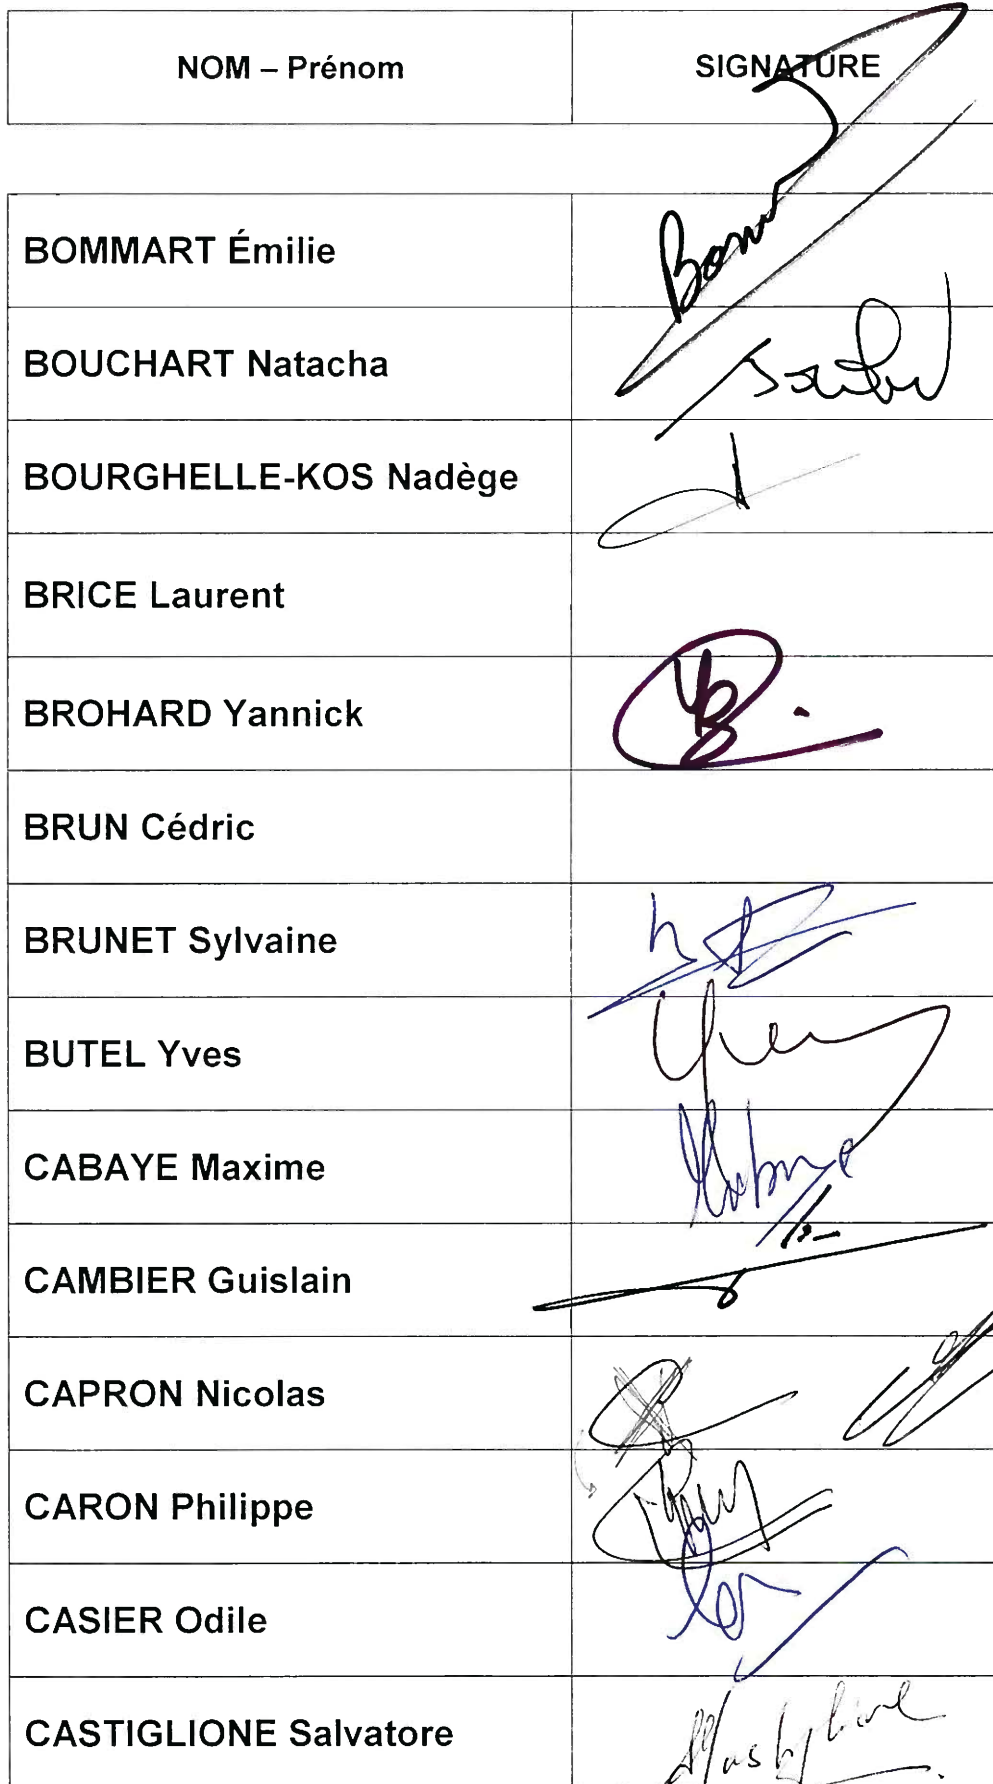 NOM – Prénom SIGNATURE
BOMMART Émilie
BOUCHART Natacha
BOURGHELLE-KOS Nadège
BRICE Laurent
BROHARD Yannick
BRUN Cédric
BRUNET Sylvaine
BUTEL Yves
CABAYE Maxime
CAMBIER Guislain
CAPRON Nicolas
CARON Philippe
CASIER Odile
CASTIGLIONE Salvatore